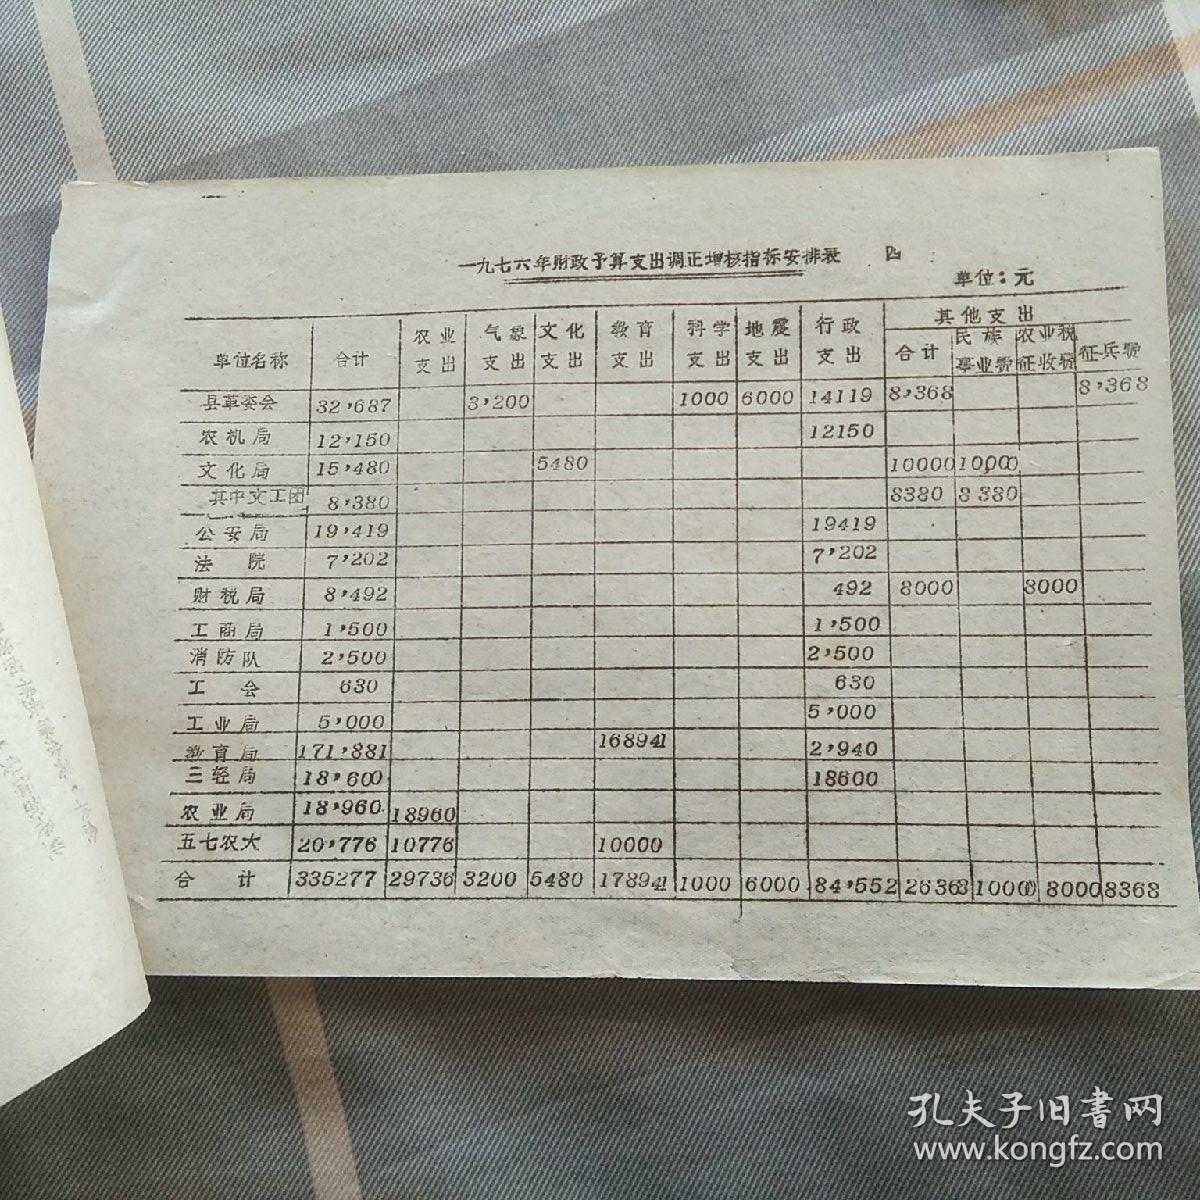 一九七六年财政予算支出调正增核指标安排表 四
单位：元
单位名称 合计 农业支出 气象支出 文化支出 教育支出 科学支出 地震支出 行政支出 其他支出
合计 民族事业费 农业税征收费 征兵费
县革委会 32,687 3,200 1000 6000 14119 8,368 8,368
农机局 12,150 12150
文化局 15,480 5480 10000 10000
其中文工团 8,380 8380 8380
公安局 19,419 19419
法院 7,202 7,202
财税局 8,492 492 8000 8000
工商局 1,500 1,500
消防队 2,500 2,500
工会 630 630
工业局 5,000 5,000
教育局 171,881 168941 2,940
三轻局 18,600 18600
农业局 18,960 18960
五七农大 20,776 10776 10000
合计 335277 29736 3200 5480 178941 1000 6000 84,552 26368 10000 8000 8368
孔夫子旧书网
www.kongfz.com